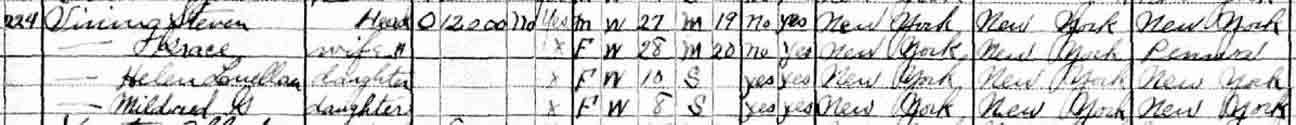 224 Vining Steven Head O 12000 No Yes M W 27 M 19 no yes New York New York New York
— Grace wife H X F W 28 M 20 no Yes New York New York Penna
— Helen Louellan daughter X F W 10 S yes yes New York New York New York
— Mildred G daughter X F W 8 S yes yes New York New York New York